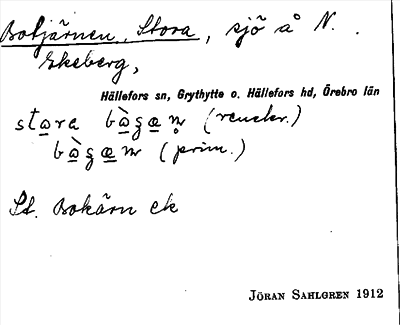 Botjärnen, Stora, sjö å N.
Ekeberg,
Hällefors sn, Grythytte o. Hällefors hd, Örebro län
stora (renskr.)
(prim.)
St. Bokärn ek
JÖRAN SAHLGREN 1912